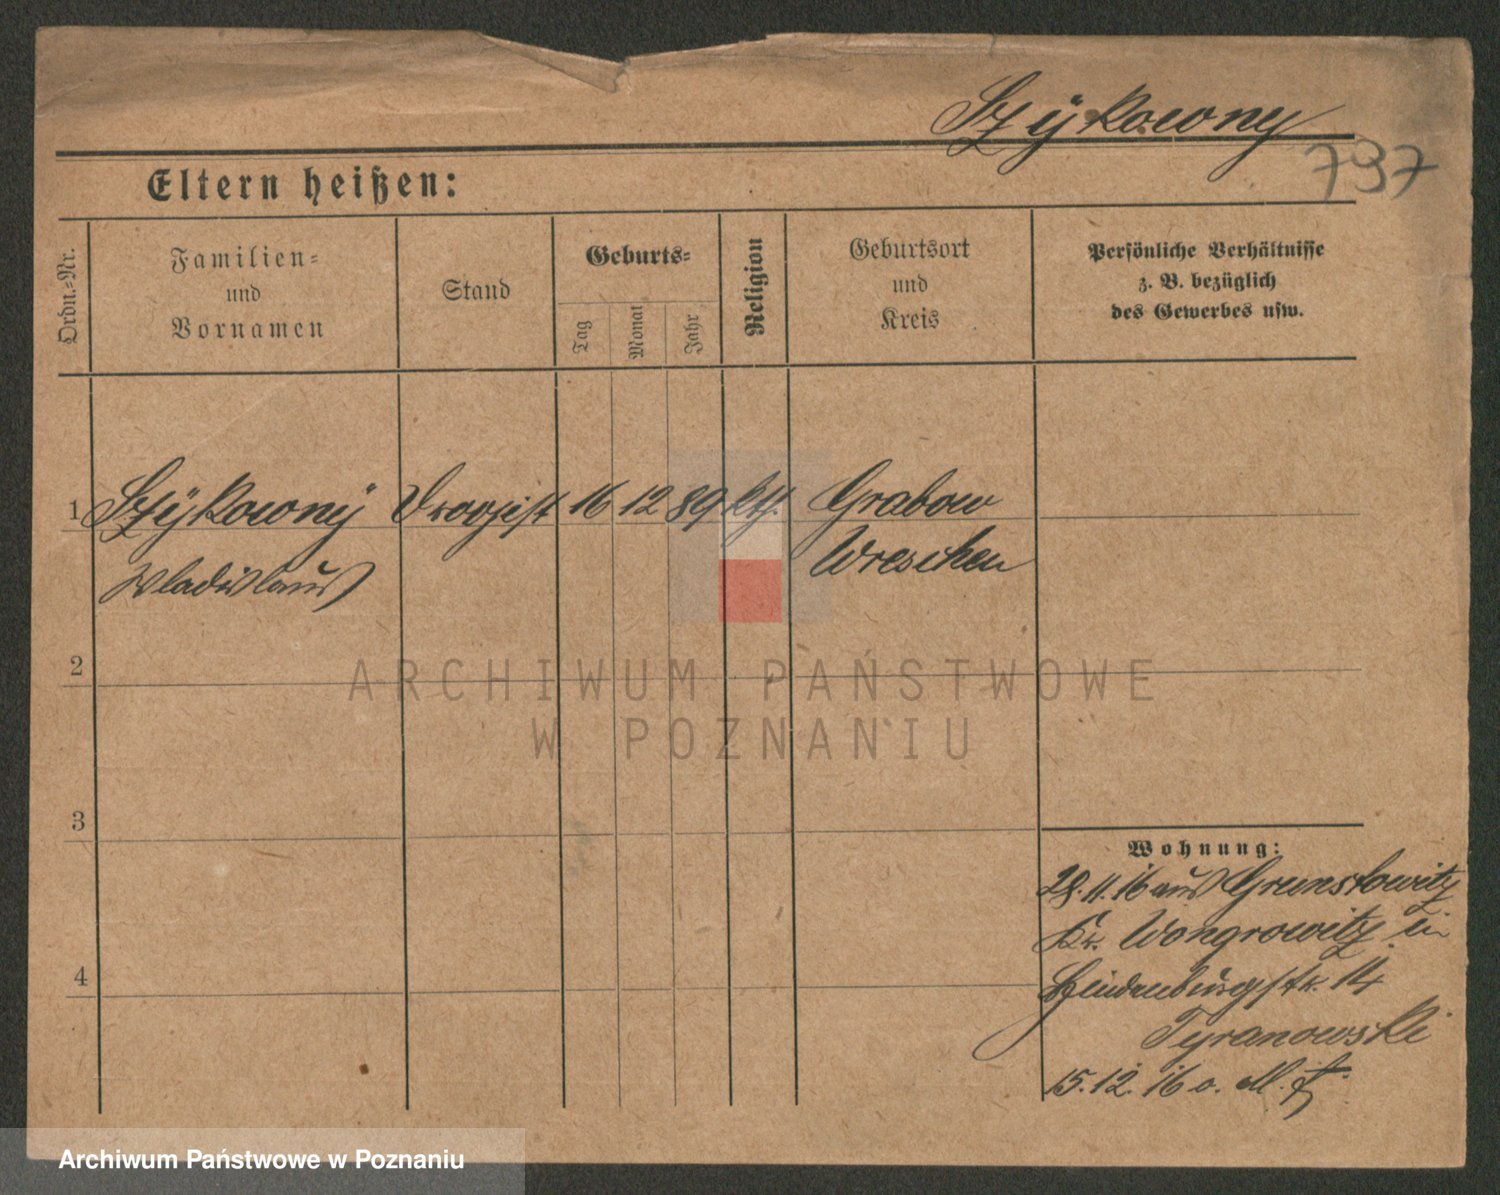 Szÿkowny
797
Eltern heißen:
Ordn.-Nr.
Familien-
und
Vornamen
Stand
Geburts-
Tag
Monat
Jahr
Religion
Geburtsort
und
Kreis
Persönliche Verhältnisse
z. B. bezüglich
des Gewerbes usw.
1 Szÿkownÿ Drogist 16 12 89 kth. Grabow
Wladislaus Wreschen
2
3
4
Wohnung:
28.11.16 aus
Kr. Wongrowitz in
Hindenburgstr. 14
Tyranowski
15.12.16 o. M.
ARCHIWUM PAŃSTWOWE
W POZNANIU
Archiwum Państwowe w Poznaniu